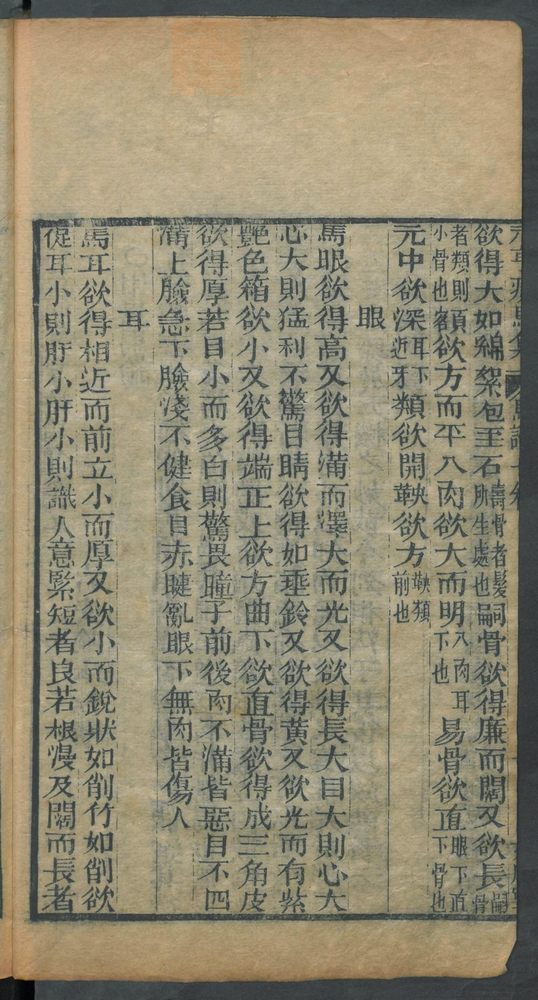 欲得大如綿絮包圭石壽骨者髮所生處也嗣骨欲得廉而闊又欲長嗣骨
者頰則頂小骨也客欲方而平八肉欲大而明八肉耳下也易骨欲直眼下直下骨也
元中欲深耳下近牙頰欲開鞅欲方鞅頰前也
眼
馬眼欲得高又欲得滿而澤大而光又欲得長大目大則心大
心大則猛利不驚目睛欲得如垂鈴又欲得黃又欲光而有紫
艷色箱欲小又欲得端正上欲方曲下欲直骨欲得成三角皮
欲得厚若目小而多白則驚畏瞳子前後肉不滿皆惡目不四
滿上臉急下臉淺不健食目赤睫亂眼下無肉皆傷人
耳
馬耳欲得相近而前立小而厚又欲小而銳狀如削竹如削欲
促耳小則肝小肝小則識人意緊短者良若根漫及闊而長者